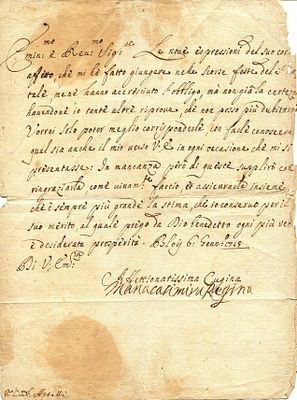 mo mo re
Emin: e Reu: Sig:
Le nuoue espressioni del suo cor:
affetto, che mi hà fatto giungere nelle scorse feste del
tale, mene hanno accresciuto l'obbligo, mà non già la certezza
hauendone io tante altre riproue, che non posso più dubitarne.
Vorrei solo poter meglio corrisponderle, con farle conoscere
qual sia anche il mio verso V. E. in ogni occasione che mi si
presentasse: In mancanza però di queste supplirò con
ringratiarla come viuam.te faccio, et assicurarla insieme
che è sempre più grande la stima, che io conseruo per il
suo merito, al quale prego da Dio benedetto ogni più vera
e desiderata prosperità. Bloij 6: Genn: 1715
Di V. Em.za
Affettionatissima Cugina
Maria Casimira Regina